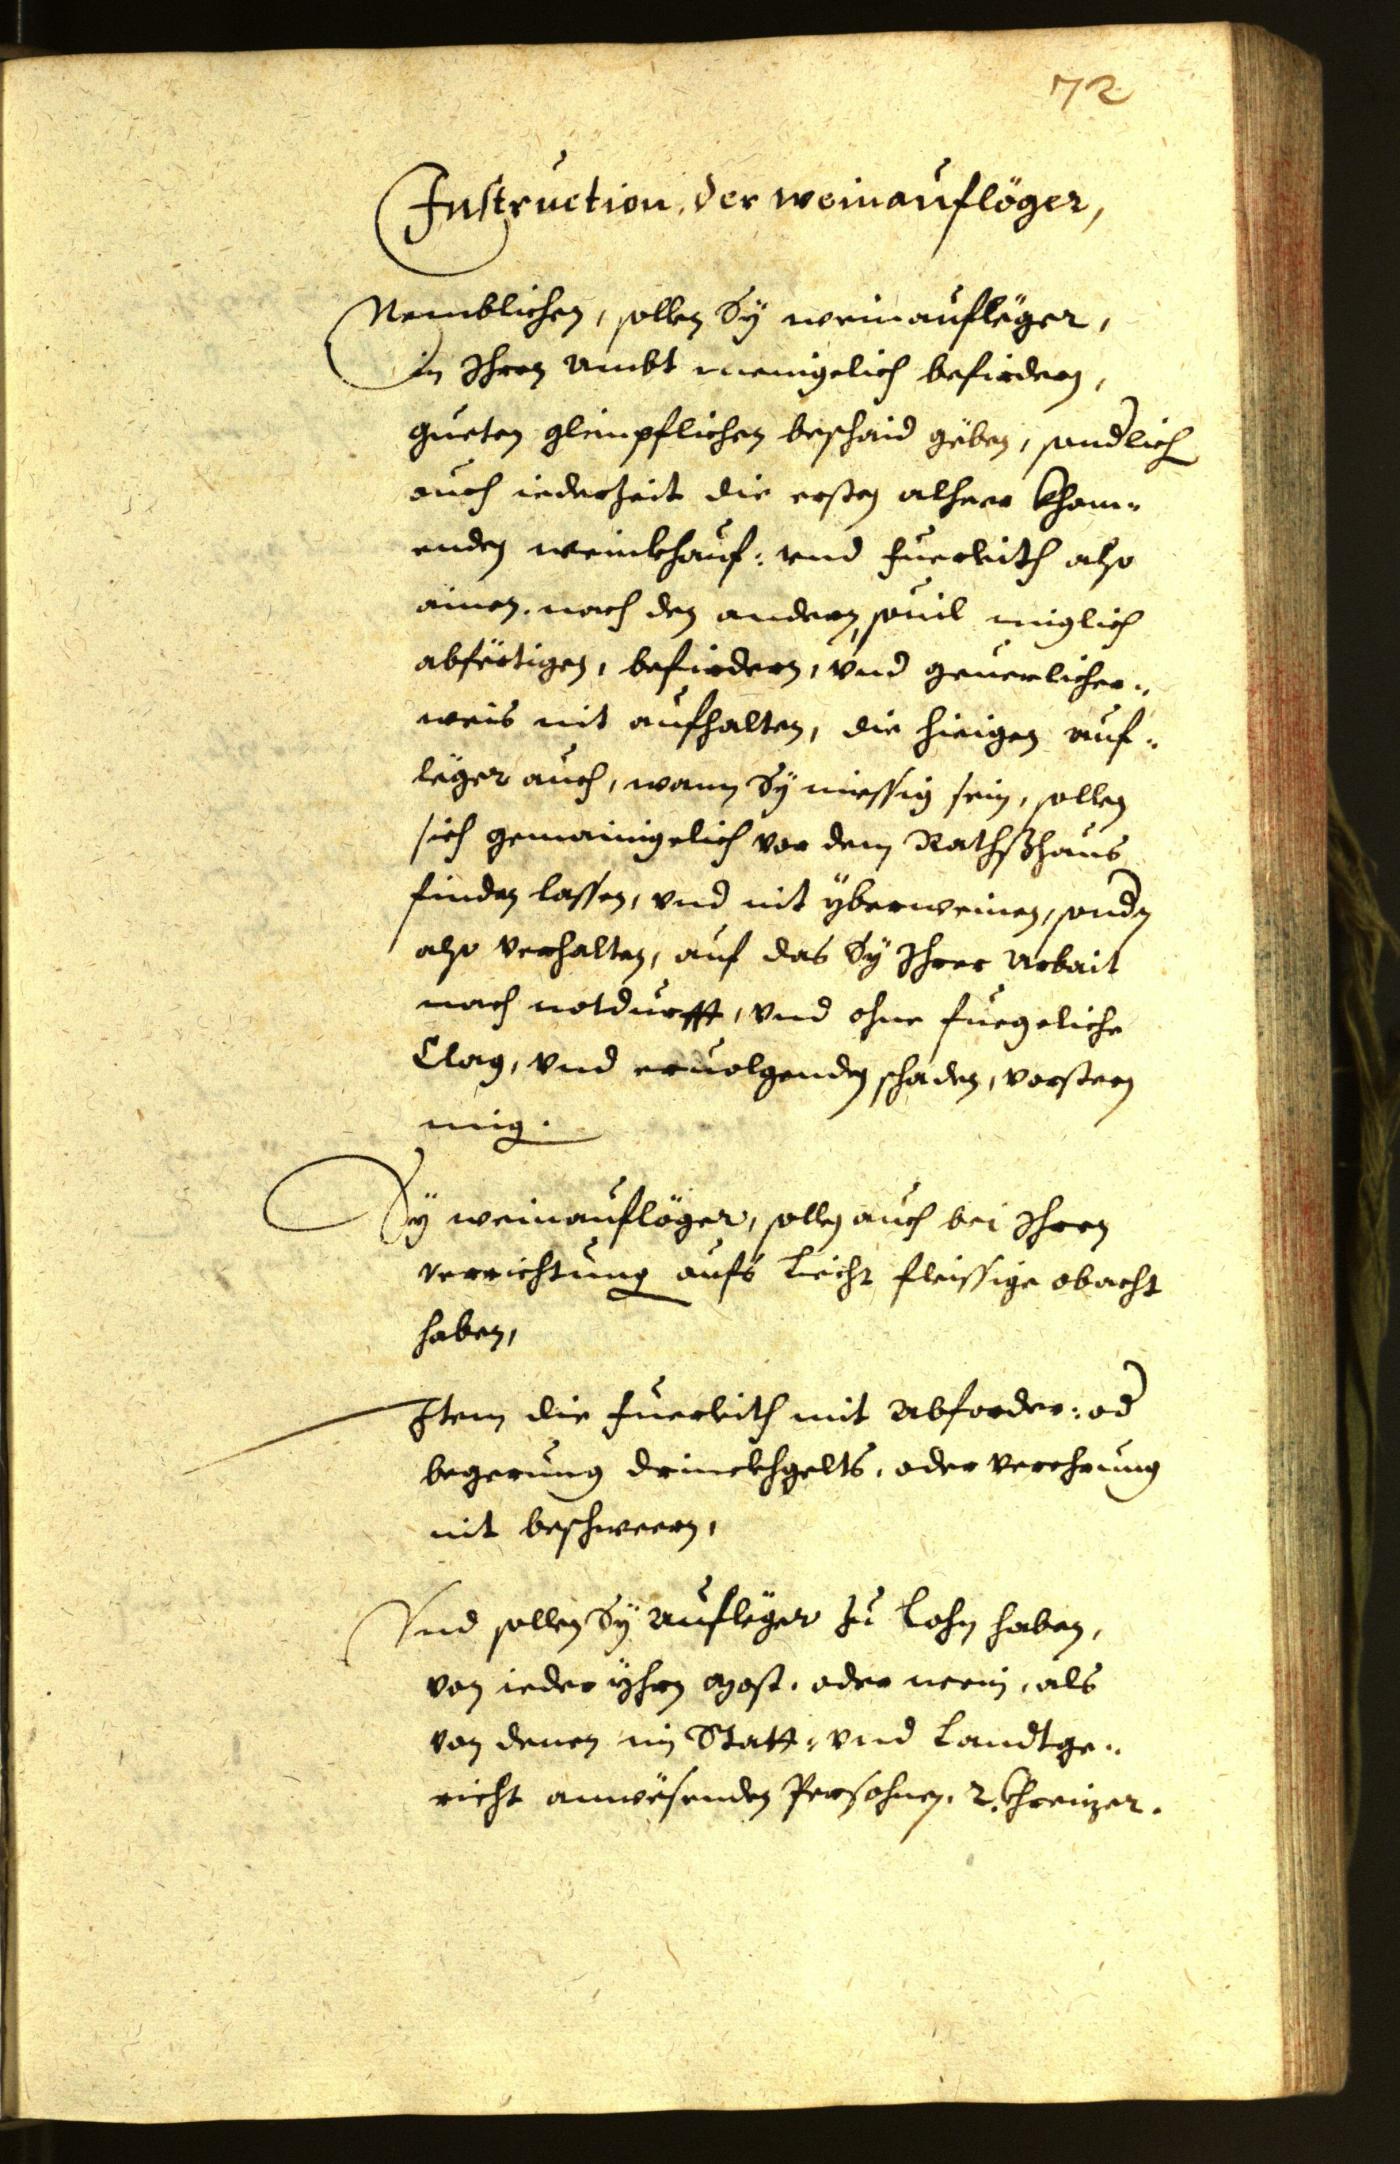 72
Instruction der weinauflöger,
Nemblichen, sollen Sÿ weinaufleger,
in Ihren Ambt menigelich befirdern,
gueten glimpflichen beschaid geben, sonderlich
auch iederzeit die ersten alheer khom-
enden weinkhauf: vnd fuerleith also
ainen nach den andern, souil miglich
abfertigen, befirdern, vnd geuerlicher-
weis nit aufhalten, die hieigen auf-
leger auch, wann Sÿ miessig sein, sollen
sich gemainigelich vor dem Rathßhaus
finden lassen, vnd nit yberweinen, sondern
also verhalten, auf das Sÿ Ihrer Arbait
nach notdurfft, vnd ohne fuegeliche
Clag, vnd eruolgenden schaden, vorsteen
mig.
Sÿ weinauflöger, sollen auch bei Ihren
verrichtung aufs Liecht fleissige obacht
haben,
Item die fuerleith mit Abforder: oder
begerung drinckhgelts, oder verehrung
nit beschweern,
Vnd sollen Sÿ Aufleger zu Lohn haben,
von ieder yhrn Most, oder wein, als
von denen im Statt- vnd Landtge-
richt anwesenden Persohnen, 2. khreizer.